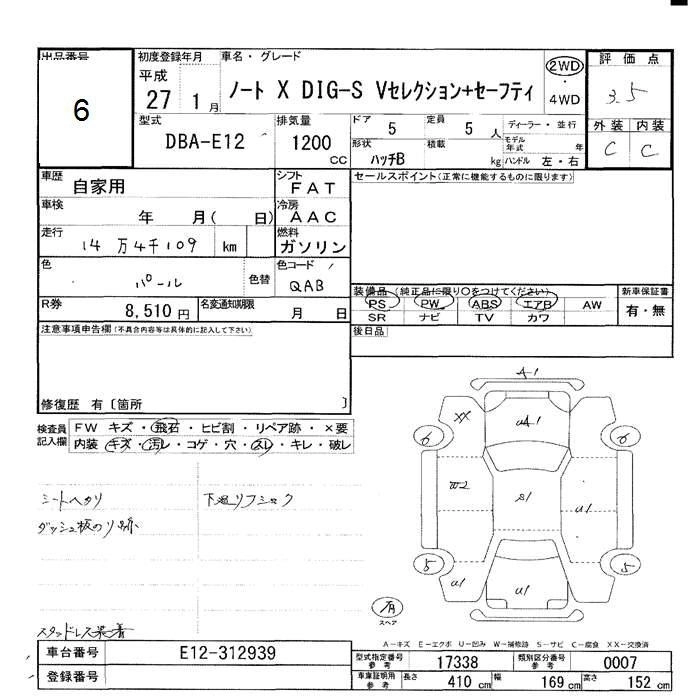 出品番号
6
初度登録年月
平成
27 1月
車名・グレード
ノート X DIG-S Vセレクション+セーフティ
2WD
4WD
評価点
3.5
型式
DBA-E12
排気量
1200
cc
ドア
5
定員
5 人
ディーラー・並行
モデル年式 年
形状
ハッチB
積載
kg
ハンドル 左・右
外装 内装
C C
車歴
自家用
シフト
FAT
セールスポイント(正常に機能するものに限ります)
車検
年 月( 日)
冷房
AAC
走行
14万4千109 km
燃料
ガソリン
色
パール
色替
色コード
QAB
装備品(純正品に限り○をつけてください)
PS PW ABS エアB AW
SR ナビ TV カワ
新車保証書
有・無
R券
8,510円
名変通知期限
月 日
後日品
注意事項申告欄(不具合内容等は具体的に記入して下さい)
修復歴 有〔箇所 〕
検査員記入欄
FW キズ・飛石・ヒビ割・リペア跡・×要
内装 キズ・汚レ・コゲ・穴・スレ・キレ・破レ
シートヘタリ
ダッシュ板のり跡
スタッドレス装着
A-1
XX
UA1
6
6
W2
S1
U1
5
5
U1
U1
スペア
A-キズ E-エクボ U-凹み W-補修跡 S-サビ C-腐食 XX-交換済
車台番号
E12-312939
登録番号
型式指定番号 参考
17338
類別区分番号 参考
0007
車庫証明用 参考
長さ 410 cm
幅 169 cm
高さ 152 cm